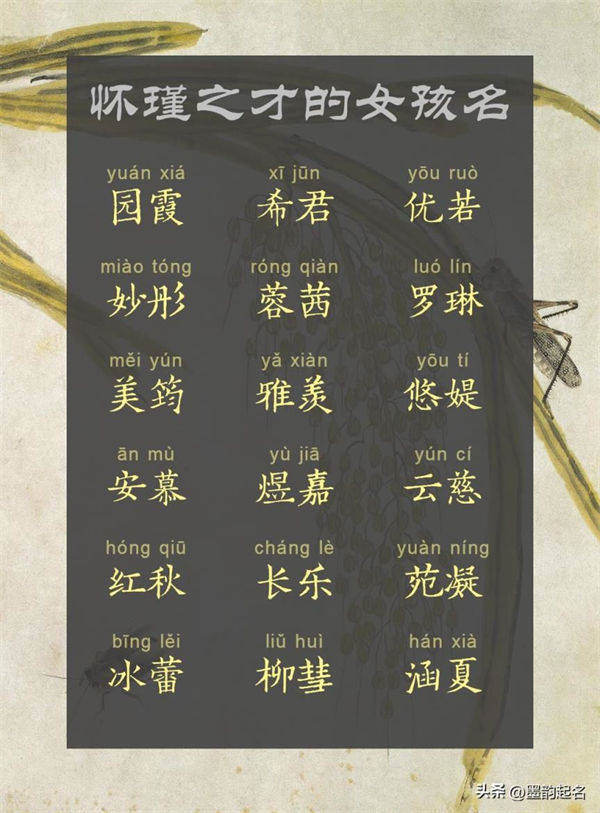 怀瑾之才的女孩名
yuán xiá xī jūn yōu ruò
园霞 希君 优若
miào tóng róng qiàn luó lín
妙彤 蓉茜 罗琳
měi yún yǎ xiàn yōu tí
美筠 雅羡 悠媞
ān mù yù jiā yún cí
安慕 煜嘉 云慈
hóng qiū cháng lè yuàn níng
红秋 长乐 苑凝
bīng lěi liǔ huì hán xià
冰蕾 柳彗 涵夏
头条 @墨韵起名